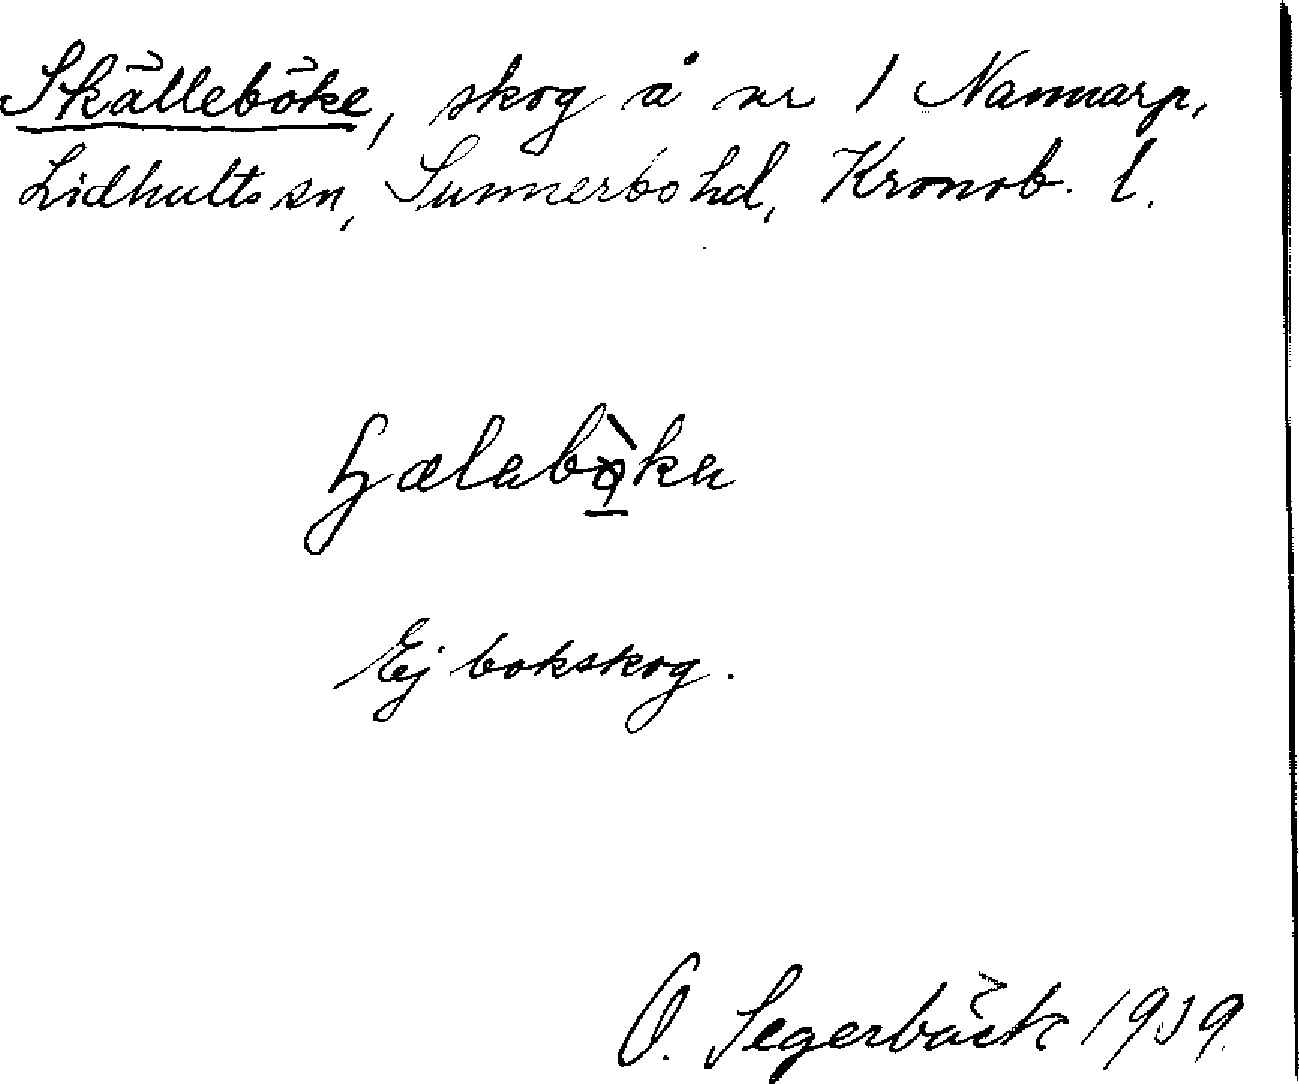 Skälleböke, skog å nr 1 Nannarp,
Lidhults sn, Sunnerbo hd, Kronob. l.
Ej bokskog.
O. Segerbäck 1939